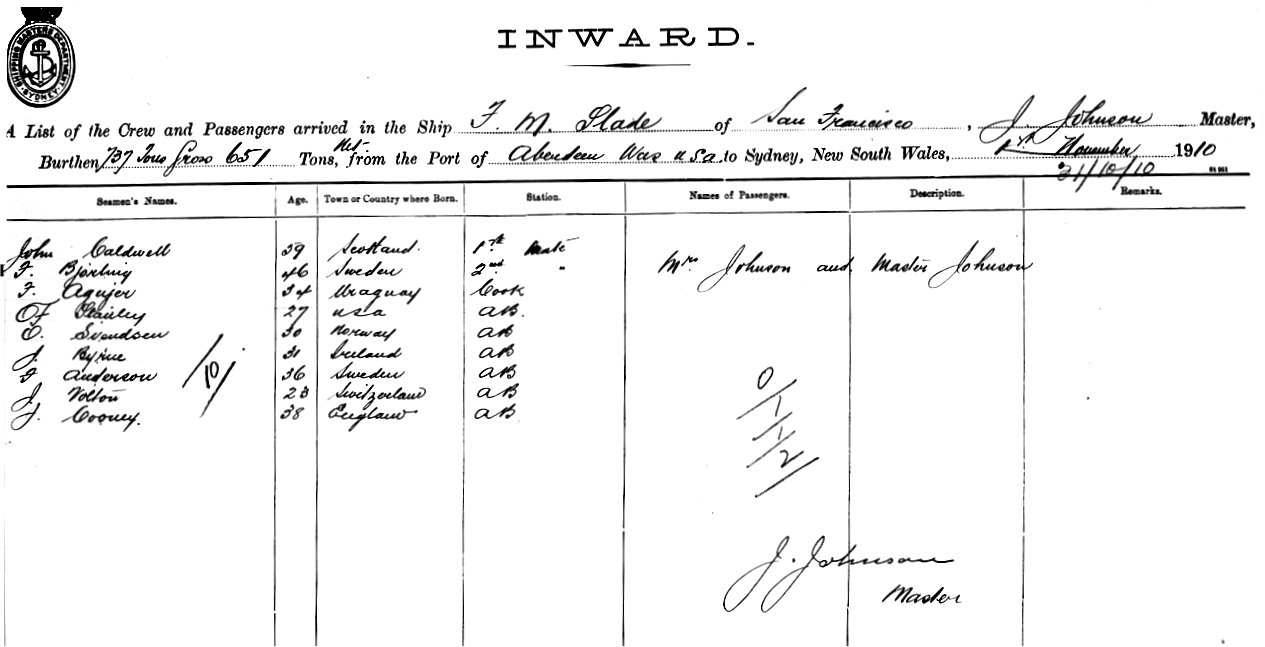 SHIPPING MASTERS DEPARTMENT
SYDNEY
INWARD.
A List of the Crew and Passengers arrived in the Ship F. M. Slade of San Francisco, J. Johnson Master,
Burthen 737 Tons Gross 651 Net Tons, from the Port of Aberdeen Was USA to Sydney, New South Wales, November 1910
31/10/10
Seamen's Names. Age. Town or Country where Born. Station. Names of Passengers. Description. Remarks.
John Caldwell 39 Scotland 1st Mate
F. 46 Sweden 2nd " Mrs Johnson and Master Johnson
F. 34 Uraguay Cook
27 USA AB.
O. Svendsen 30 Norway AB
J. Byrne 31 Ireland AB
F Anderson 36 Sweden AB
J. Volton 23 Switzerland AB
J. Cooney. 38 England AB
/10/
0/1/1/2/
J. Johnson
Master